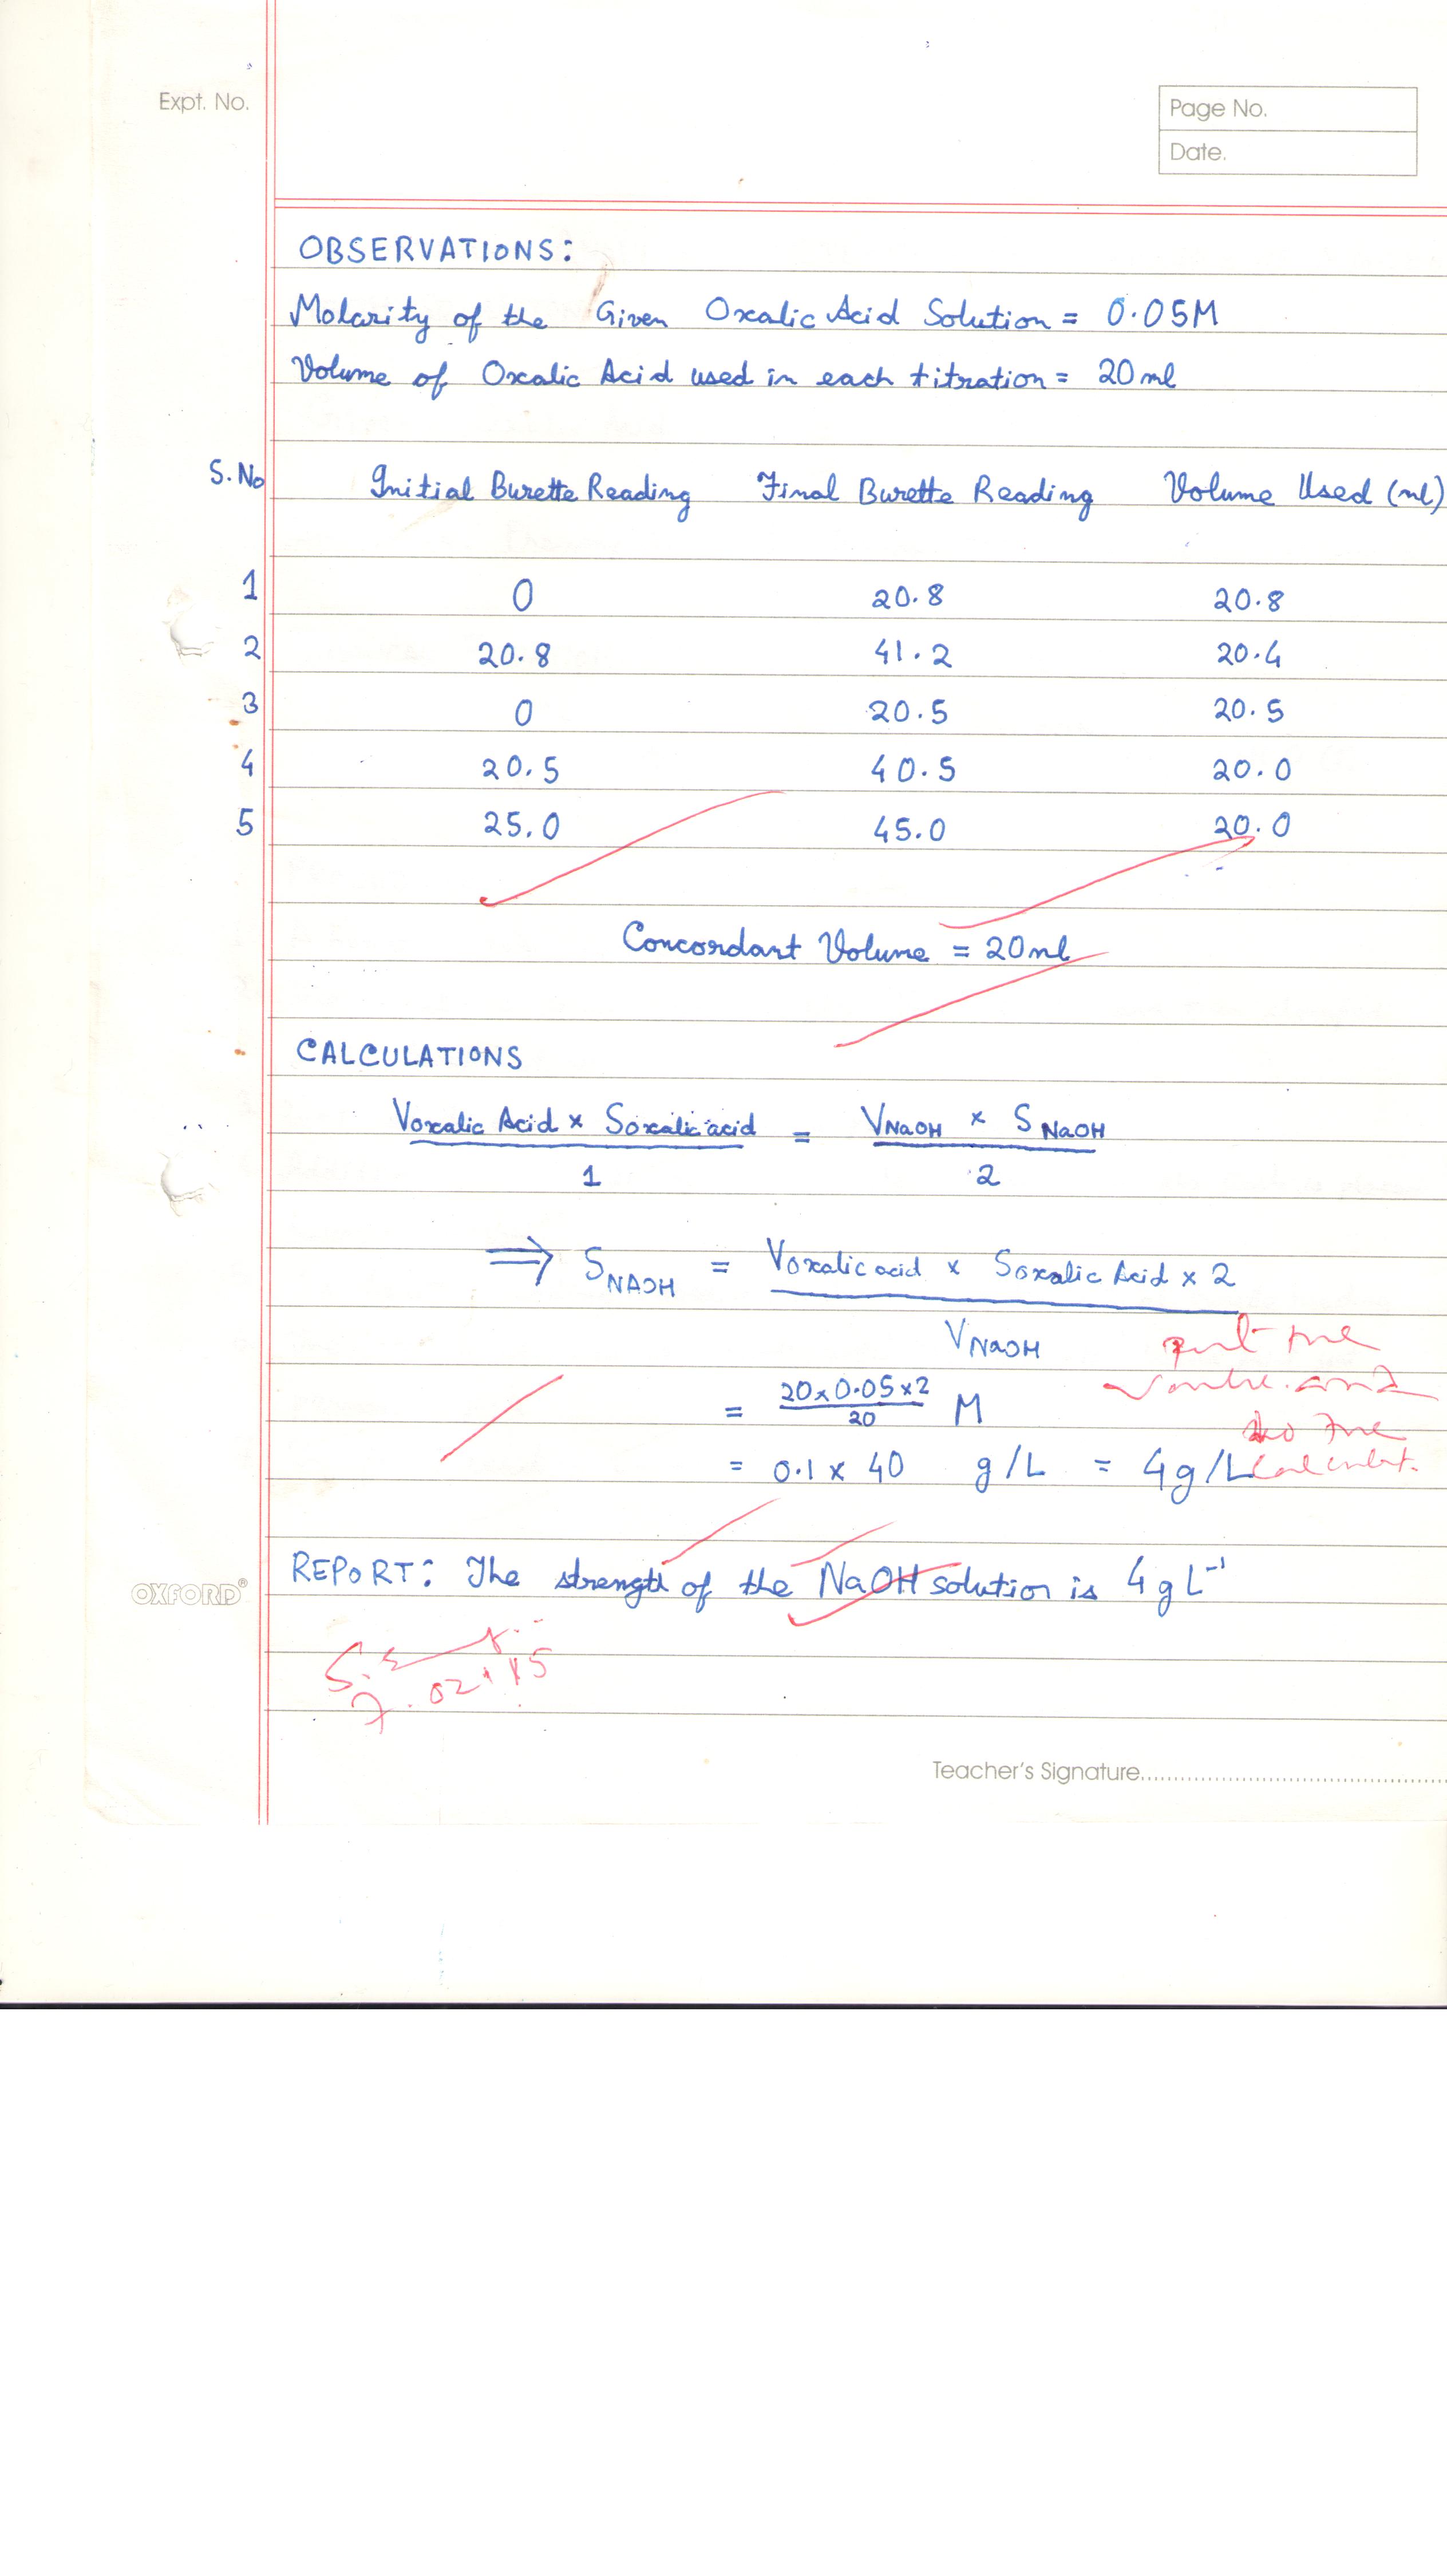 Expt. No.
Page No.
Date.
OBSERVATIONS:
Molarity of the Given Oxalic Acid Solution = 0.05M
Volume of Oxalic Acid used in each titration = 20 ml
S.No Initial Burette Reading Final Burette Reading Volume Used (ml)
1 0 20.8 20.8
2 20.8 41.2 20.4
3 0 20.5 20.5
4 20.5 40.5 20.0
5 25.0 45.0 20.0
Concordant Volume = 20ml
CALCULATIONS
Voxalic Acid x Soxalic acid = VNaOH x S NaOH
1 2
⟹ SNAOH = Voxalic acid x Soxalic Acid x 2
VNaOH
put the
= 20x0.05x2 M
20
and
= 0.1 x 40 g/L = 4g/L
REPORT: The strength of the NaOH solution is 4 g L⁻¹
OXFORD®
Teacher's Signature